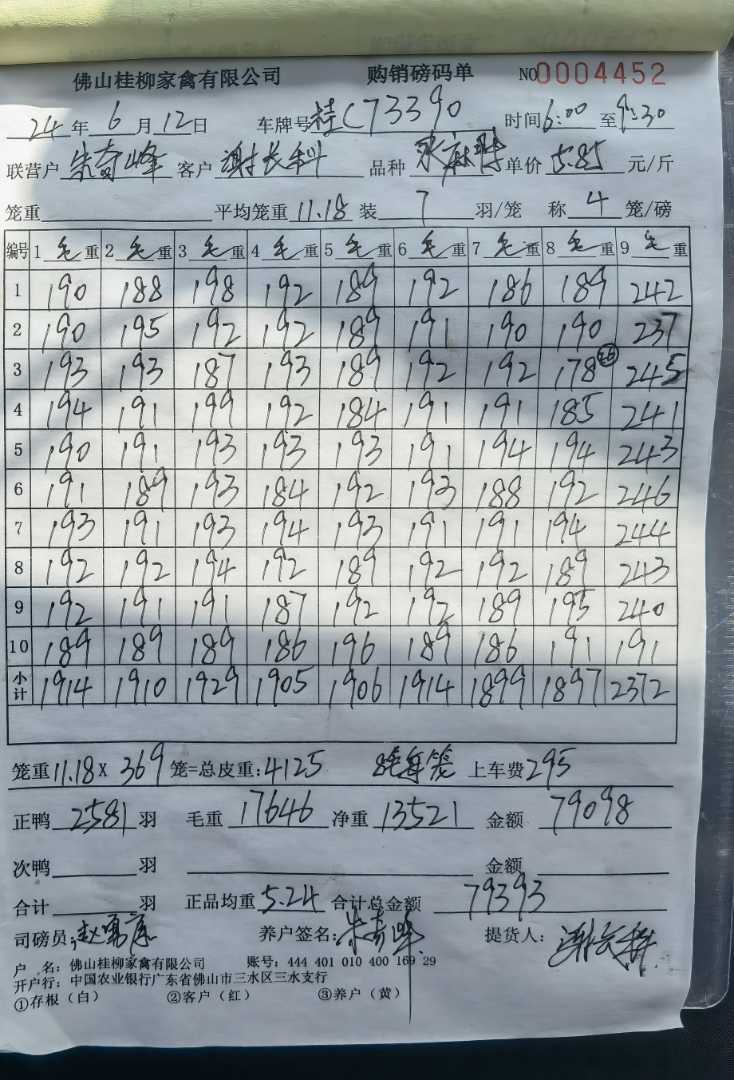 佛山桂柳家禽有限公司 购销磅码单 NO0004452
24年6月12日 车牌号桂C73390 时间6:00至9:30
联营户朱奇峰 客户谢长科 品种 单价5.85元/斤
笼重 平均笼重11.18装7羽/笼 称4笼/磅
编号 1毛重 2毛重 3毛重 4毛重 5毛重 6毛重 7毛重 8毛重 9毛重
1 190 188 198 192 189 192 186 189 242
2 190 195 192 192 189 191 190 190 237
3 193 193 187 193 189 192 192 178 245
4 194 191 199 192 184 191 191 185 241
5 190 191 193 193 193 191 194 194 243
6 191 189 193 184 192 193 188 192 246
7 193 191 193 194 193 191 191 194 244
8 192 192 194 192 189 192 192 189 243
9 192 191 191 187 192 192 189 195 240
10 189 189 189 186 196 189 186 191 191
小计 1914 1910 1929 1905 1906 1914 1899 1897 2372
笼重11.18×369笼=总皮重:4125 上车费295
正鸭2581羽 毛重17646净重13521 金额79098
次鸭 羽 金额
合计 羽 正品均重5.24合计总金额79393
司磅员: 养户签名:朱奇峰 提货人:谢长科
户 名:佛山桂柳家禽有限公司 账号:444 401 010 400 169 29
开户行:中国农业银行广东省佛山市三水区三水支行
①存根(白) ②客户(红) ③养户(黄)